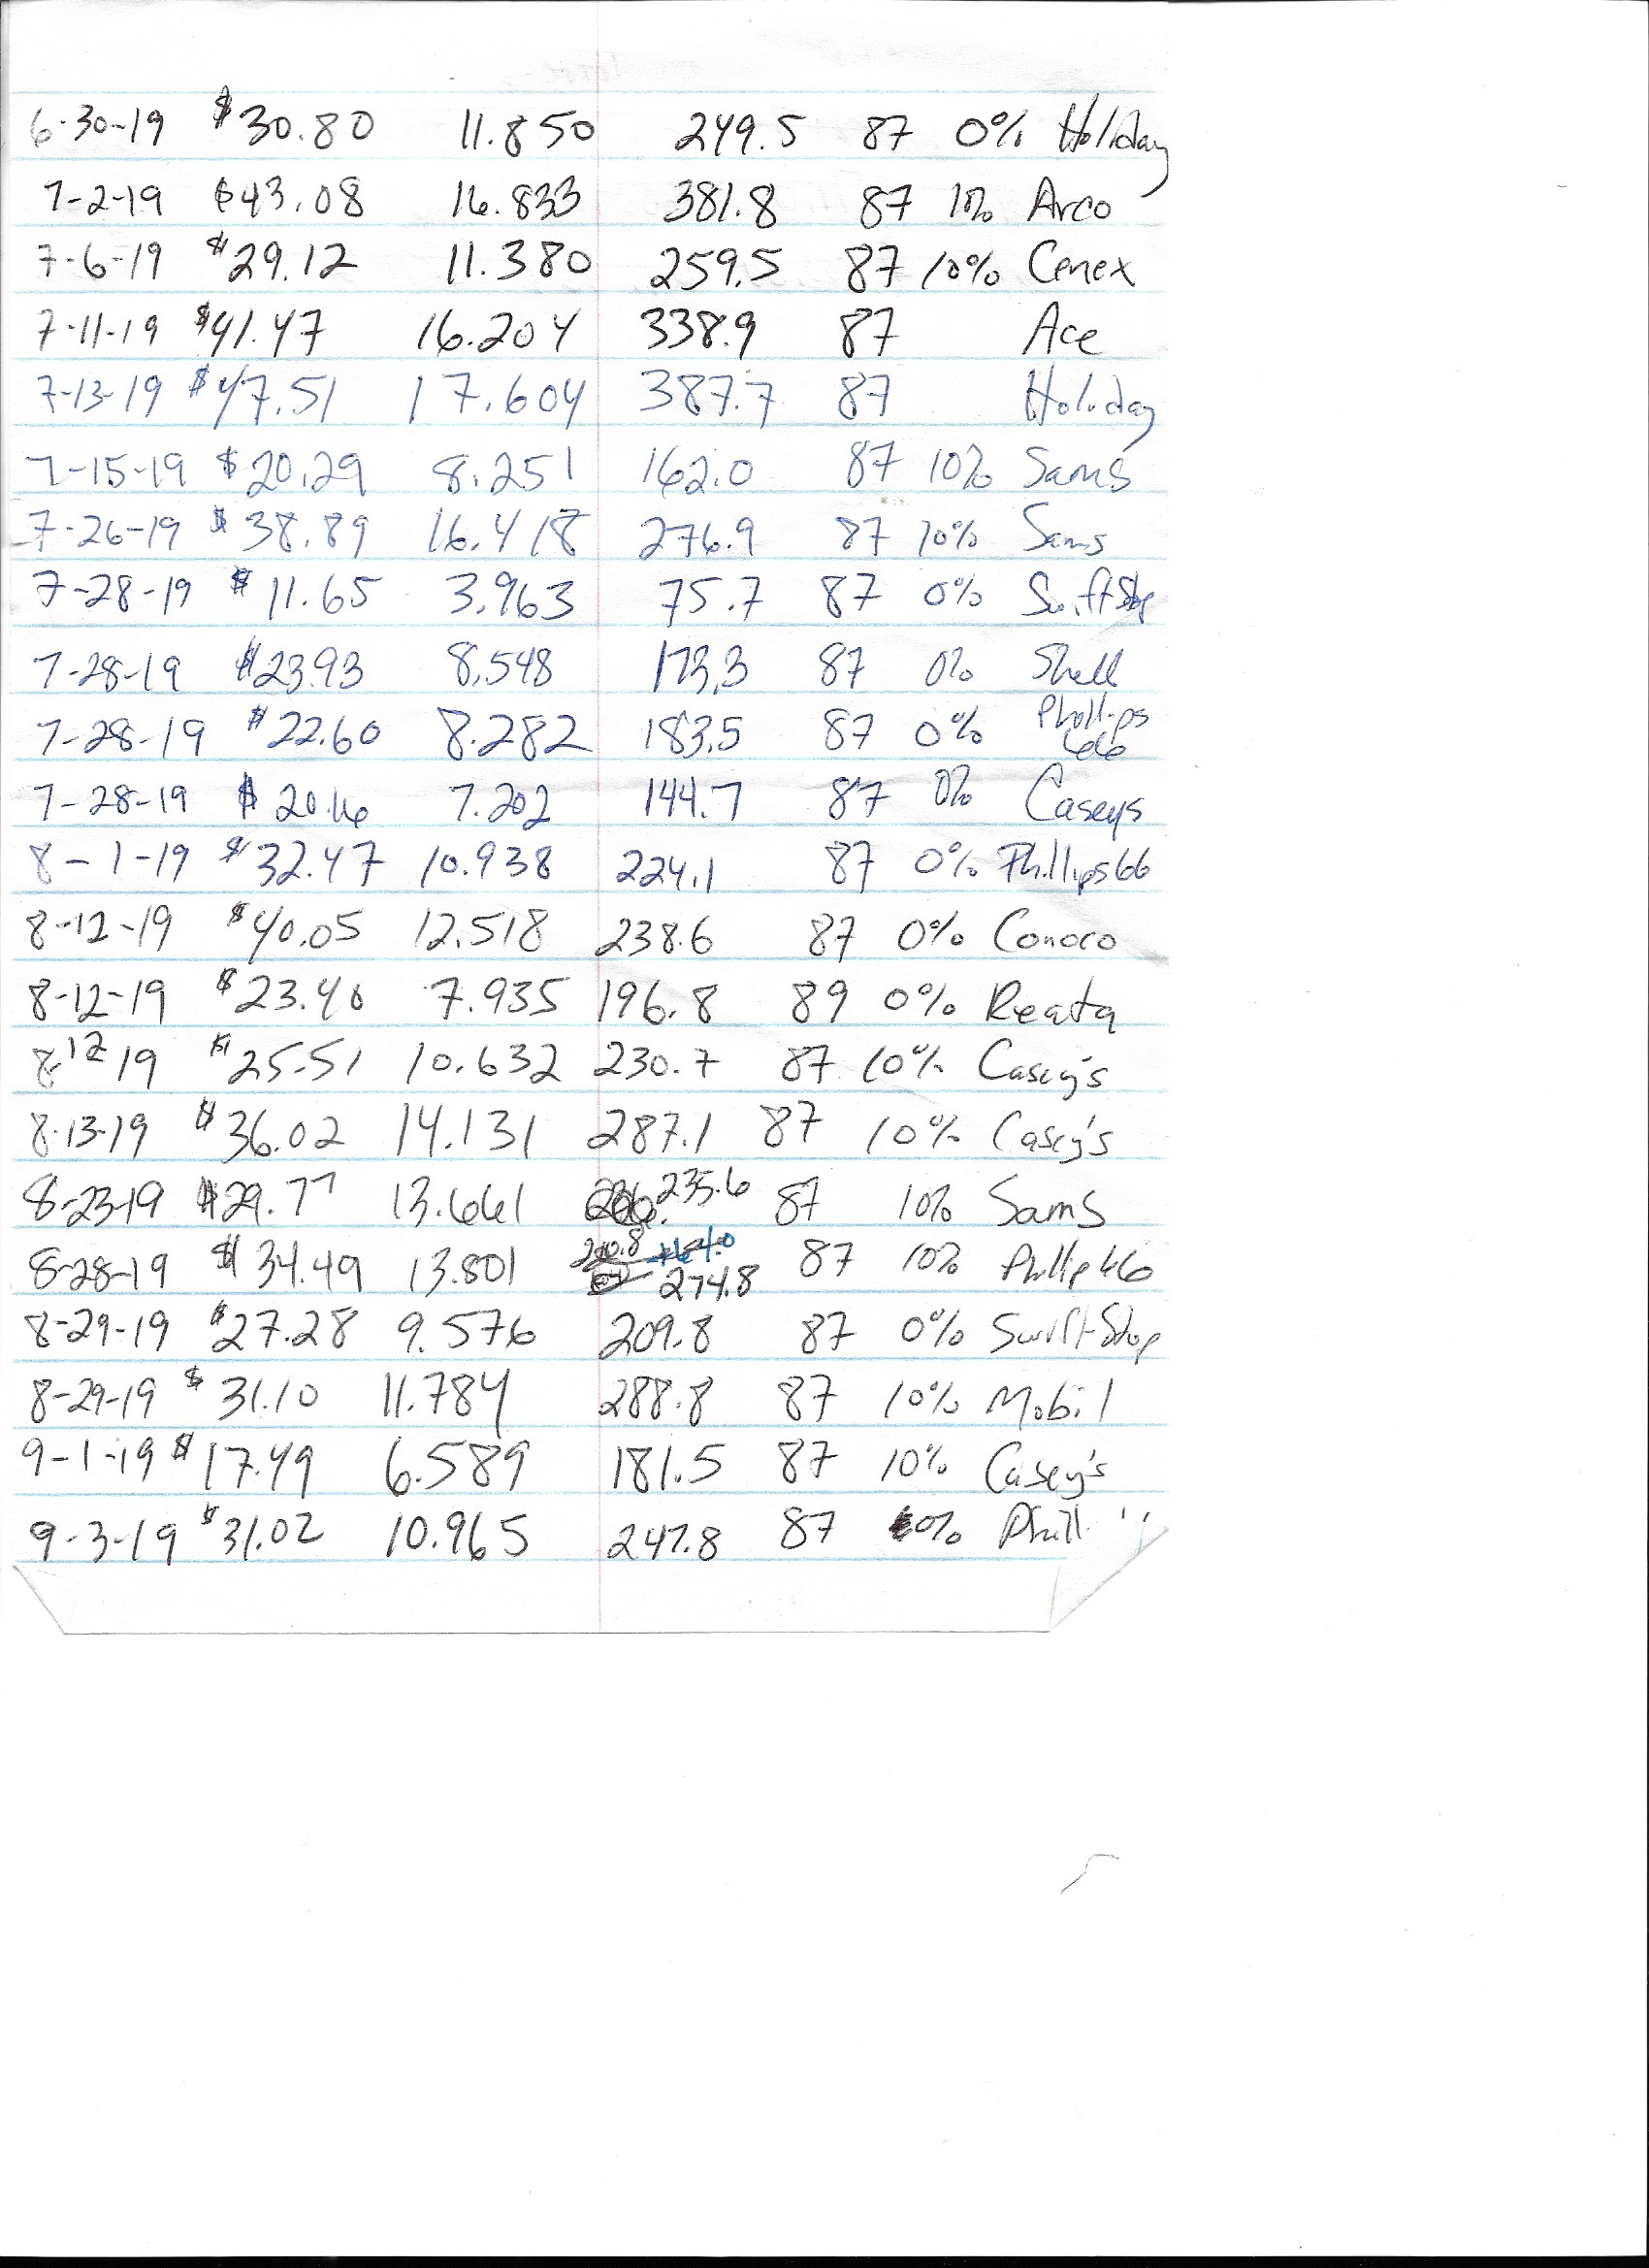 6-30-19 $30.80 11.850 249.5 87 0% Holiday
7-2-19 $43.08 16.833 381.8 87 10% Arco
7-6-19 $29.12 11.380 259.5 87 10% Cenex
7-11-19 $41.47 16.204 338.9 87 Ace
7-13-19 $47.51 17.604 387.7 87 Holiday
7-15-19 $20.29 8.251 162.0 87 10% Sam's
7-26-19 $38.89 16.418 276.9 87 10% Sams
7-28-19 $11.65 3.963 75.7 87 0% Swift Stop
7-28-19 $23.93 8.548 173.3 87 0% Shell
7-28-19 $22.60 8.282 183.5 87 0% Phillips 66
7-28-19 $20.16 7.202 144.7 87 0% Caseys
8-1-19 $32.47 10.938 224.1 87 0% Phillips 66
8-12-19 $40.05 12.518 238.6 87 0% Conoco
8-12-19 $23.40 7.935 196.8 89 0% Reata
8-12 19 $25.51 10.632 230.7 87 10% Casey's
8-13-19 $36.02 14.131 287.1 87 10% Casey's
8-23-19 $29.77 13.661 235.6 87 10% Sams
8-28-19 $34.49 13.801 210.8 +64.0 274.8 87 10% Phillip 66
8-29-19 $27.28 9.576 209.8 87 0% Swift Stop
8-29-19 $31.10 11.784 288.8 87 10% Mobil
9-1-19 $17.49 6.589 181.5 87 10% Casey's
9-3-19 $31.02 10.965 247.8 87 0% Phill